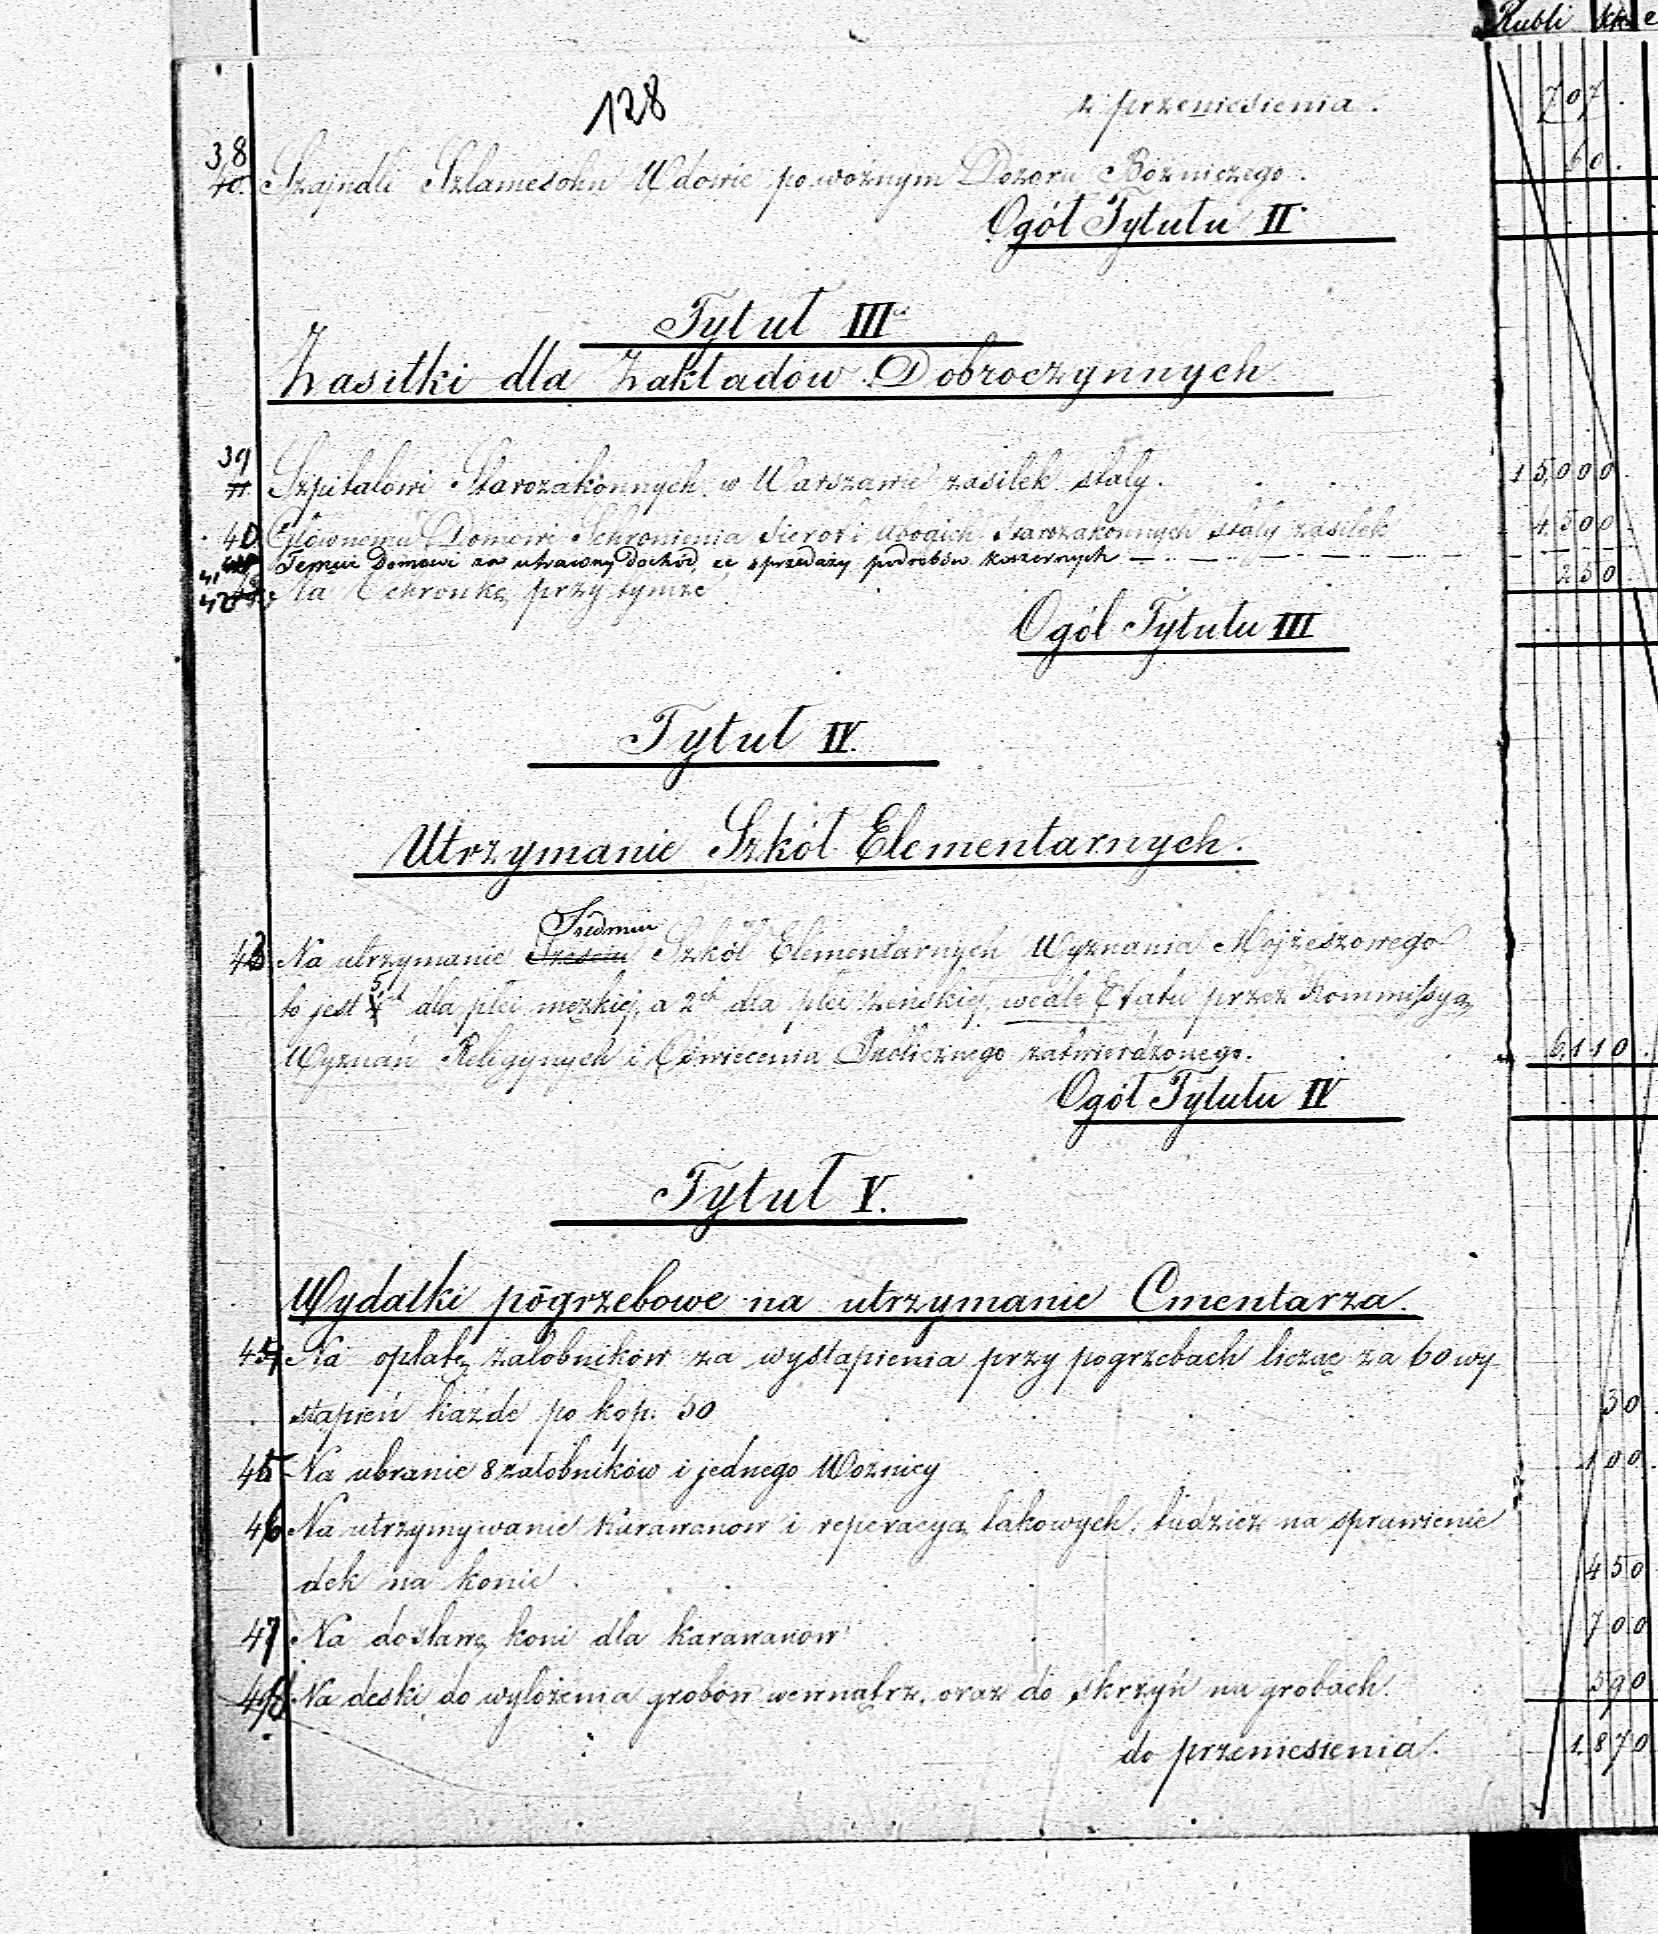 Rubli
128
z przeniesienia. 707
38 40. Szajndli Szlamesohn Wdowie po woźnym Dozoru Bóżniczego. 60.
Ogół Tytułu II
Tytuł III
Zasiłki dla Zakładów Dobroczynnych
39 Szpitalowi Starozakonnych w Warszawie zasiłek stały. 15,000
40 Głównemu Domowi Schronienia sierot i ubogich Starozakonnych stały zasiłek 4,500
41 Temuż Domowi za utracony Dochód ze sprzedaży podrobów koszernych
42 Na Ochronkę przy tymże 250
Ogół Tytułu III
Tytuł IV.
Utrzymanie Szkół Elementarnych.
Siedmiu
43 Na utrzymanie Sześciu Szkół Elementarnych Wyznania Mojżeszowego
to jest 5 dla płci męzkiej, a 2ch dla płci żeńskiej, wedle Etatu przez Kommissyą
Wyznań Religijnych i Oświecenia Publicznego zatwierdzonego. 6,110.
Ogół Tytułu IV
Tytuł V.
Wydatki pogrzebowe na utrzymanie Cmentarza.
44 Na opłatę żałobników za wystąpienia przy pogrzebach licząc za 60 wy-
stąpień każde po kop. 50 30.
45 Na ubranie 8 żałobników i jednego Woźnicy 100.
46 Na utrzymywanie karawanów i reperacyą takowych, tudzież na sprawienie
dek na konie. 450
47 Na dostawę koni dla karawanów 700
48 Na deski do wyłożenia grobów wewnątrz, oraz do skrzyń na grobach. 590
do przeniesienia. 1,870